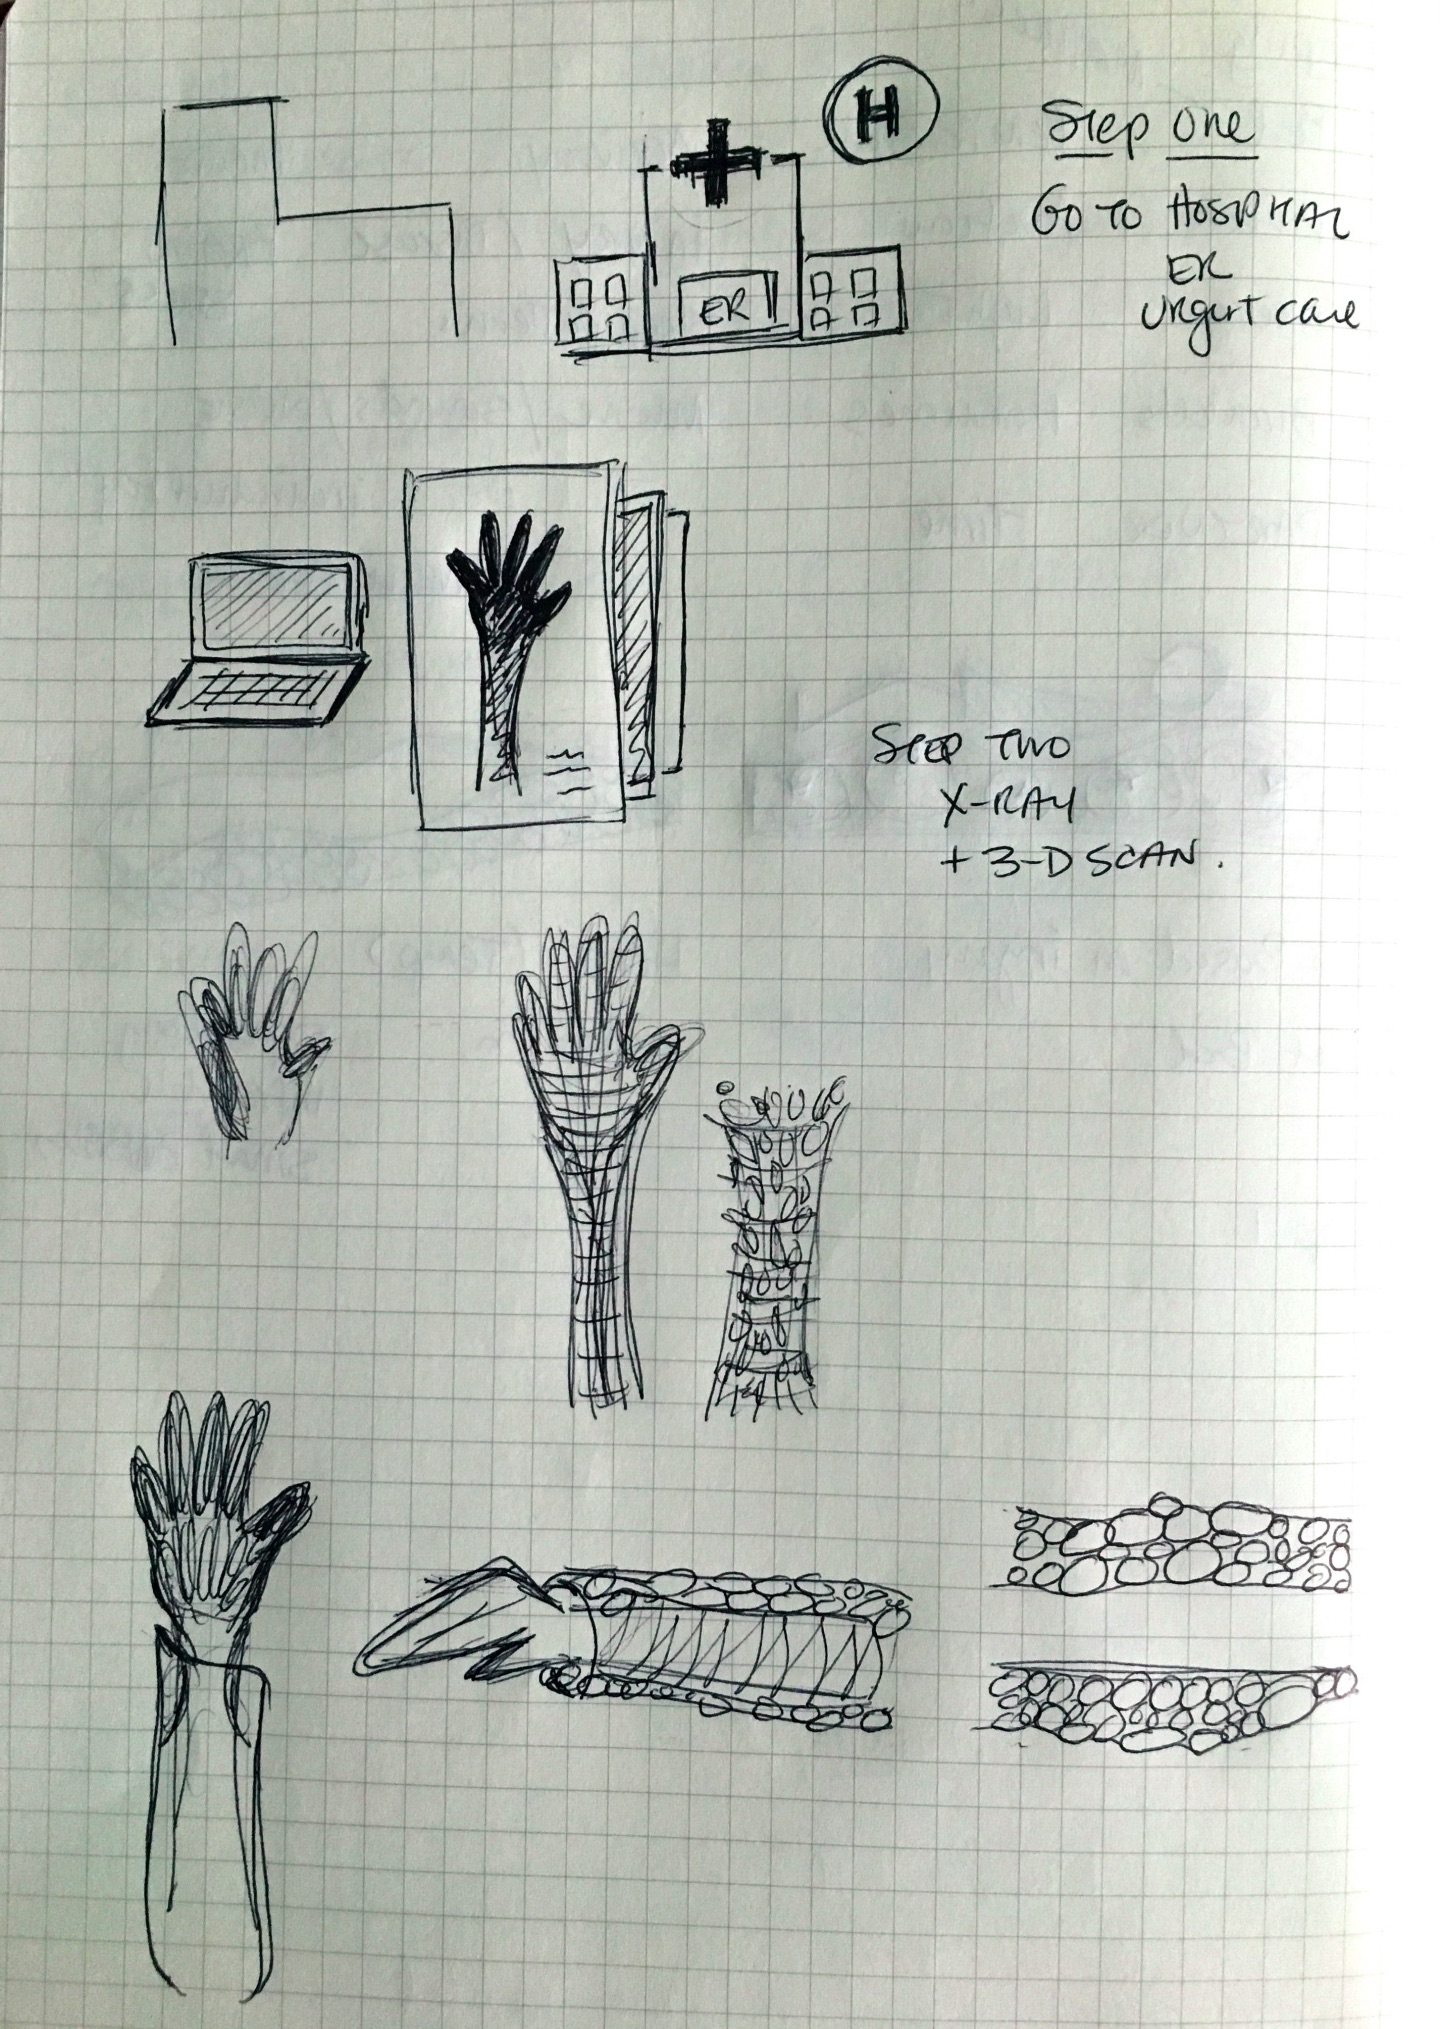 H
Step One
GO TO HOSPITAL
ER
urgent care
ER
STEP TWO
X-RAY
+ 3-D SCAN.